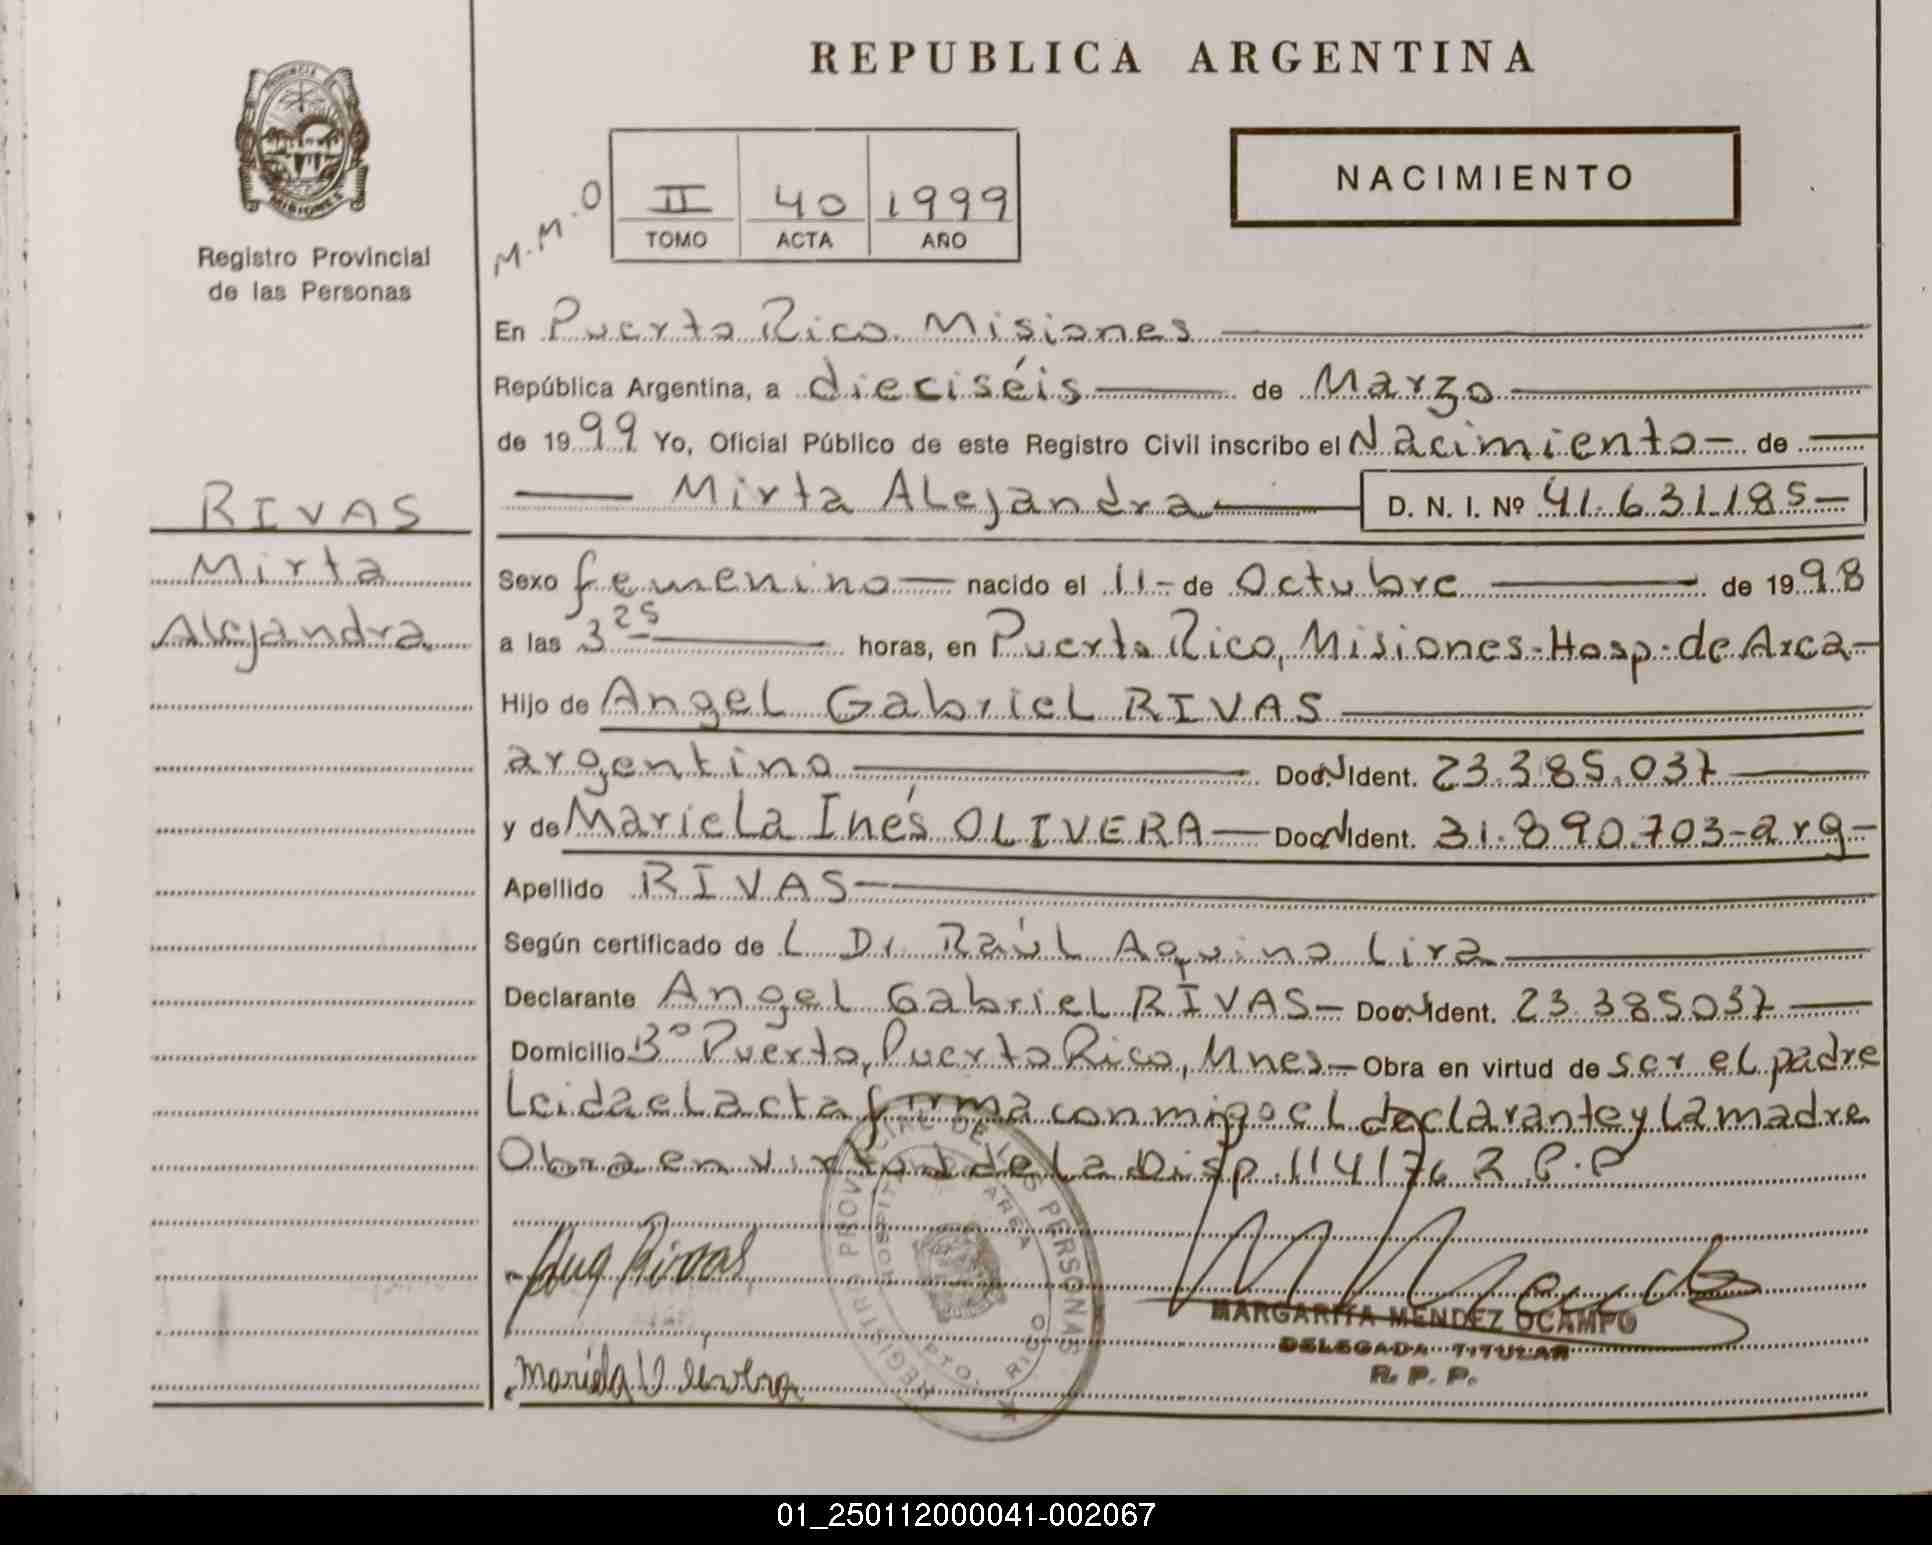 REPUBLICA ARGENTINA
PROVINCIA
MISIONES
Registro Provincial
de las Personas
M.M.O
II 40 1999
TOMO ACTA AÑO
NACIMIENTO
En Puerto Rico Misiones
República Argentina, a dieciséis de Marzo
de 1999 Yo, Oficial Público de este Registro Civil inscribo el Nacimiento de
Mirta Alejandra D. N. I. Nº 41.631.185
RIVAS
Mirta
Alejandra
Sexo femenino nacido el 11 de Octubre de 1998
a las 3 25 horas, en Puerto Rico, Misiones-Hosp. de Area
Hijo de Angel Gabriel RIVAS
argentino Doc.N.Ident. 23.385.037
y de Mariela Inés OLIVERA Doc.N.Ident. 31.890.703-arg
Apellido RIVAS
Según certificado de L Dr. Raúl Aquino Lira
Declarante Angel Gabriel RIVAS Doc.N.Ident. 23.385037
Domicilio 3º Puerto, Puerto Rico, Mnes Obra en virtud de ser el padre
Leida el acta firma conmigo el declarante y la madre
Obra en virtud de la Disp. 114/76 R.P.P
REGISTRO PROV DE LAS PERSONAS
HOSPITAL AREA
PTO. RICO
Ang Rivas
Mariela Olivera
MARGARITA MENDEZ OCAMPO
DELEGADA TITULAR
R. P. P.
01_250112000041-002067